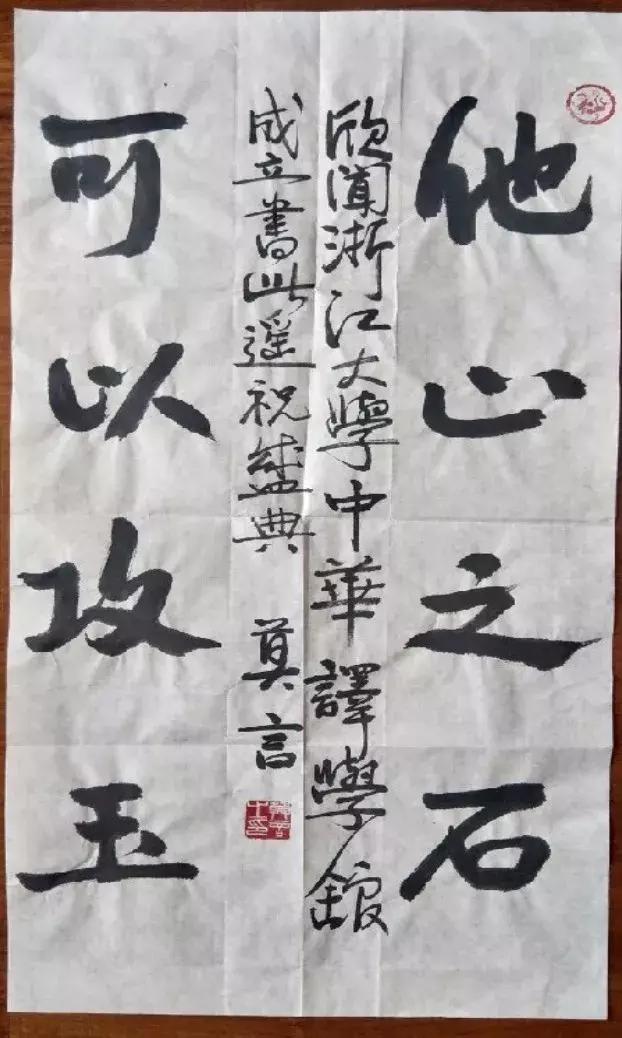 他山之石
欣闻浙江大學中華譯學舘
成立書此遥祝盛典 莫言
可以攻玉